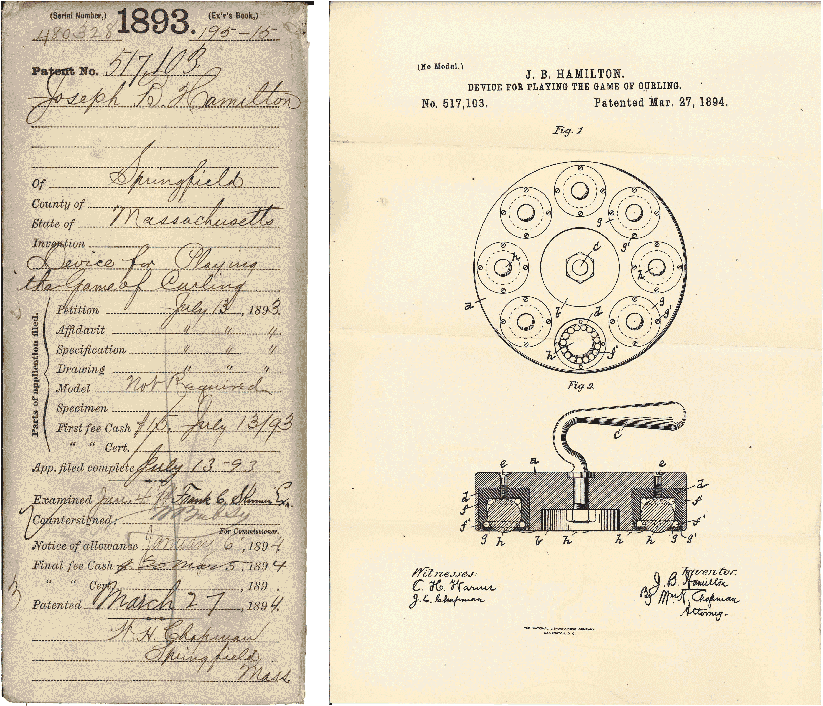 (Serial Number,) 1893. (Ex'r's Book,)
480328 195-15
Patent No. 517,103
Joseph B. Hamilton
Of Springfield
County of
State of Massachusetts
Invention
Device for Playing
the Game of Curling
Parts of application filed.
Petition July 13, 1893.
Affidavit " " "
Specification " " "
Drawing " " "
Model Not Required
Specimen
First fee Cash $15. July 13/93
" " Cert.
App. filed complete July 13-93
Examined Frank C. Skinner Ex.
Countersigned:
For Commissioner.
Notice of allowance January 6, 1894
Final fee Cash $20 Mar 5, 1894
" " Cert. , 189
Patented March 27, 1894.
W. H. Chapman
Springfield
Mass.
(No Model.)
J. B. HAMILTON.
DEVICE FOR PLAYING THE GAME OF CURLING.
No. 517,103. Patented Mar. 27, 1894.
Fig. 1
g
c
g'
h h
a g
b d g'
h f'
Fig 2.
c
e a e
d d
f f
f' f'
g h b h h g g'
Witnesses: Inventor.
J. B. Hamilton
J. C. Chapman By Chapman
Attorney.